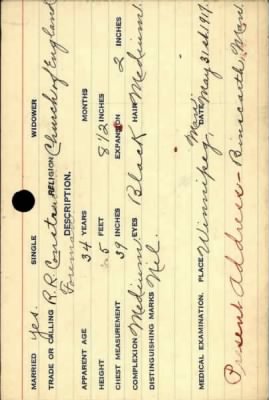 MARRIED Yes. SINGLE WIDOWER
TRADE OR CALLING R.R. Constru. RELIGION Church of England
Foreman DESCRIPTION.
APPARENT AGE 34 YEARS MONTHS
HEIGHT 5 FEET 8 1/2 INCHES
CHEST MEASUREMENT 39 INCHES EXPANSION 2 INCHES
COMPLEXION Medium EYES Black HAIR Medium
DISTINGUISHING MARKS Nil.
MEDICAL EXAMINATION. PLACE Winnipeg, Man. DATE May 31st. 1917.
Present Address - Binscarth, Man.